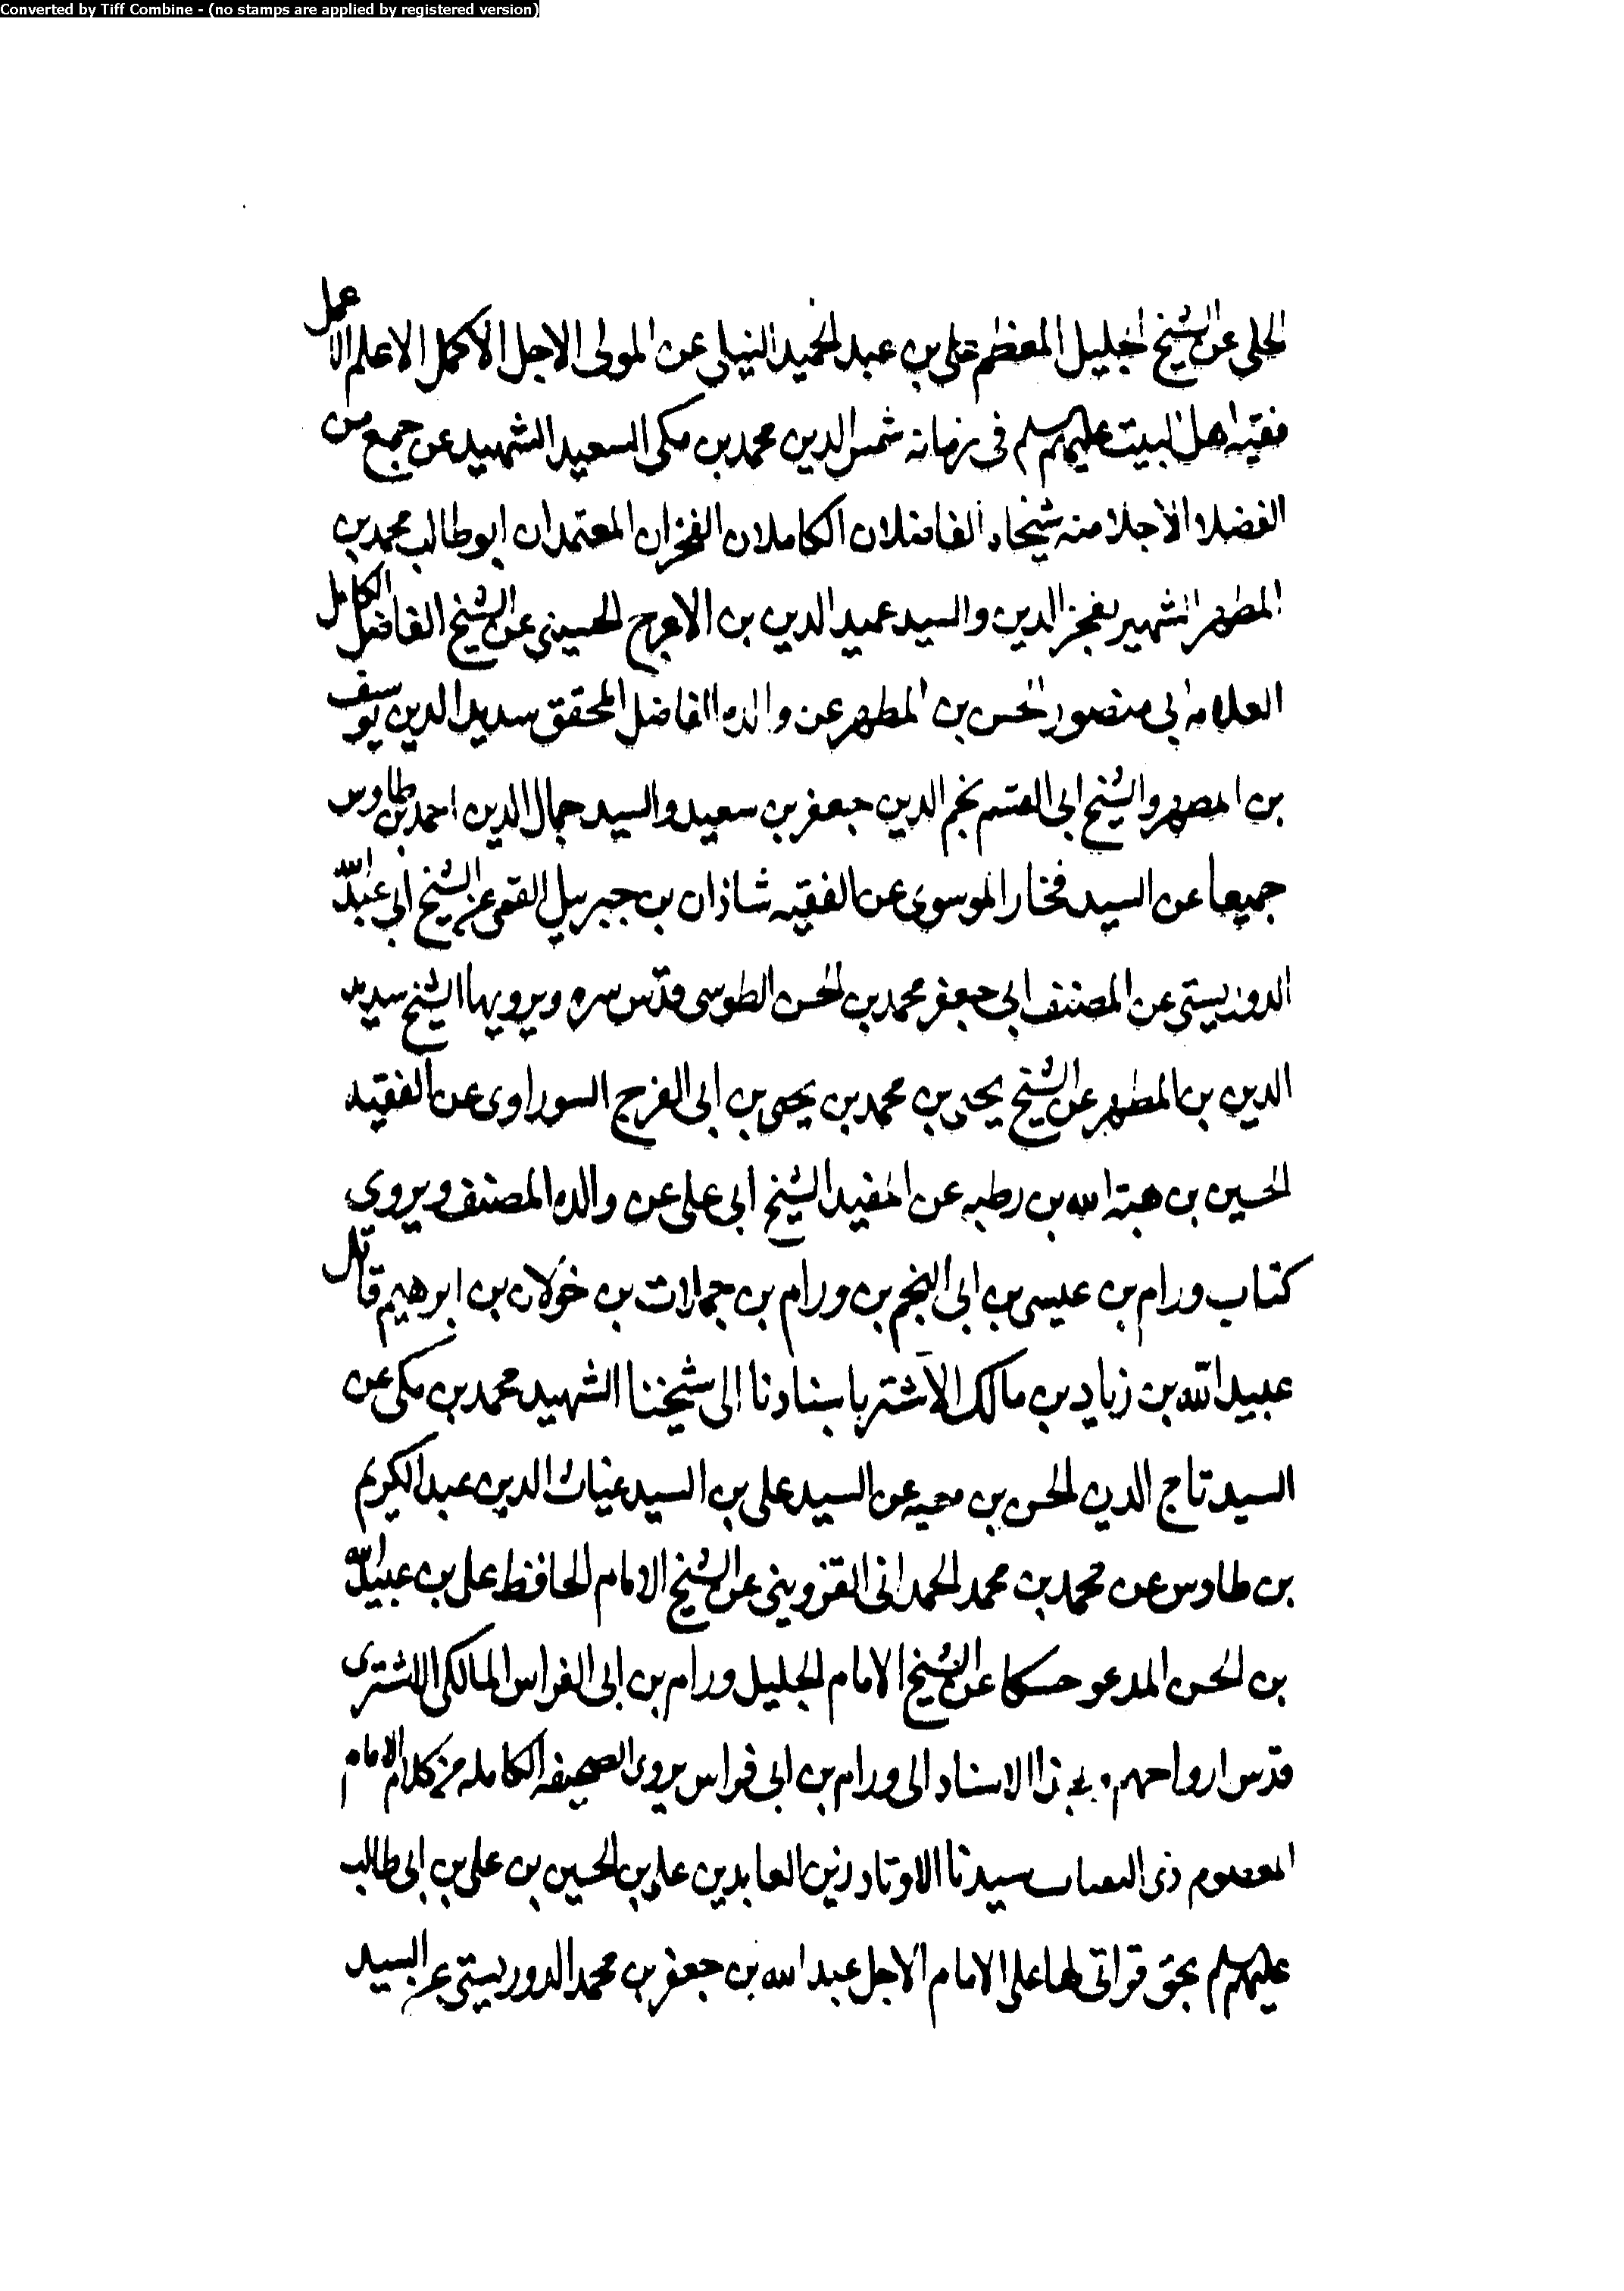 Converted by Tiff Combine - (no stamps are applied by registered version)
الحلى عن الشيخ الجليل المعظم على بن عبد الحميد النيلى عن المولى الاجل الاكمل الاعلم الاعمل
فقيه اهل البيت عليهم السلم فى زمانه شمس الدين محمد بن مكى السعيد الشهيد عن جمع من
الفضلا الاجلا منه شيخاه الفاضلان الكاملان الفخران المعتمدان ابو طالب محمد بن
المطهر الشهير بفخر الدين والسيد عميد الدين بن الاعرج الحسينى عن الشيخ الفاضل الكامل
العلامه ابى منصور الحسن بن المطهر عن والده الفاضل المحقق سديد الدين يوسف
بن المطهر والشيخ ابى القسم نجم الدين جعفر بن سعيد والسيد جمال الدين احمد بن طاوس
جميعا عن السيد فخار الموسوى عن الفقيه شاذان بن جبرييل القمى عن الشيخ ابى عبد الله
الدوريستى عن المصنف ابى جعفر محمد بن الحسن الطوسى قدس سره ويرويها الشيخ سديد
الدين بن المطهر عن الشيخ يحيى بن محمد بن يحيى بن ابى الفرج السوراوى عن الفقيه
الحسين بن هبة الله بن رطبه عن المفيد الشيخ ابى على عن والده المصنف ويروى
كتاب ورام بن عيسى بن ابى النجم بن ورام بن حمدان بن خولان بن ابرهيم قاتل
عبيد الله بن زياد بن مالك الاشتر باسنادنا الى شيخنا الشهيد محمد بن مكى عن
السيد تاج الدين الحسن بن معيه عن السيد على بن السيد غياث الدين عبد الكريم
بن طاوس عن محمد بن محمد الحمدانى القزوينى عن الشيخ الامام الحافظ على بن عبيد الله
بن الحسن المدعو حسكا عن الشيخ الامام الجليل ورام بن ابى الفراس المالكى الاشترى
قدس ارواحهم وبهذا الاسناد الى ورام بن ابى فراس يروى الصحيفه الكامله من كلام الامام
المعصوم ذى سيدنا الاوتاد زين العابدين على بن الحسين بن على بن ابى طالب
عليهم السلم بحق قراتى لها على الامام الاجل عبد الله بن جعفر بن محمد الدوريستى عن السيد